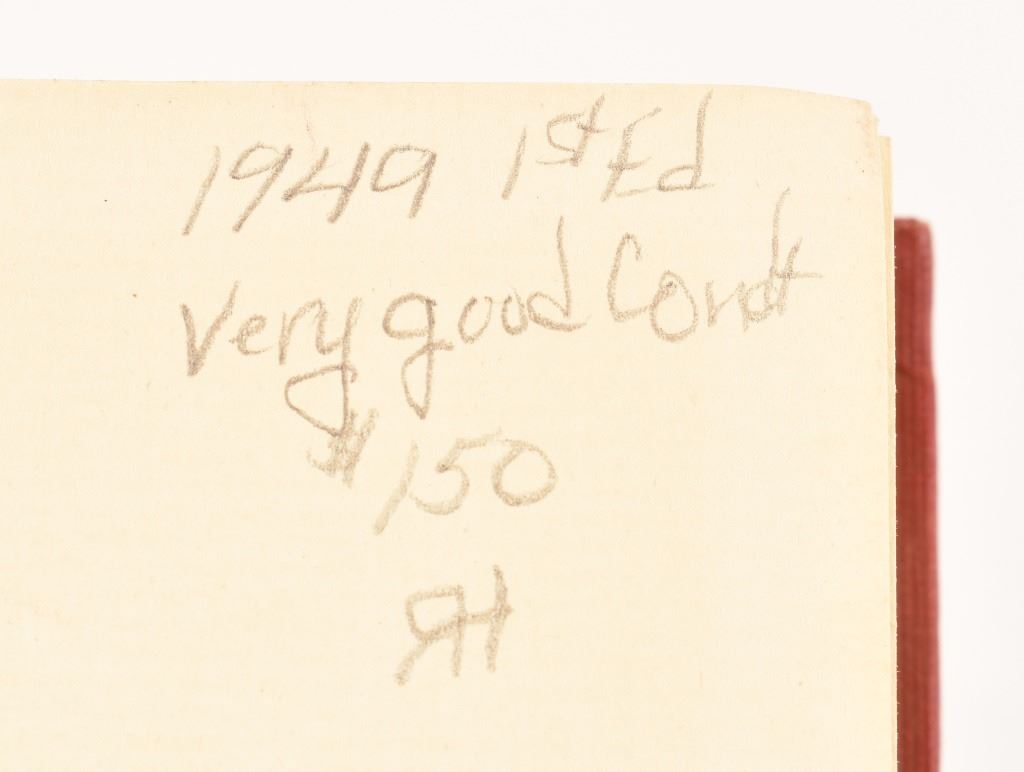 1949 1st Ed
Very good Condt
$150
RH